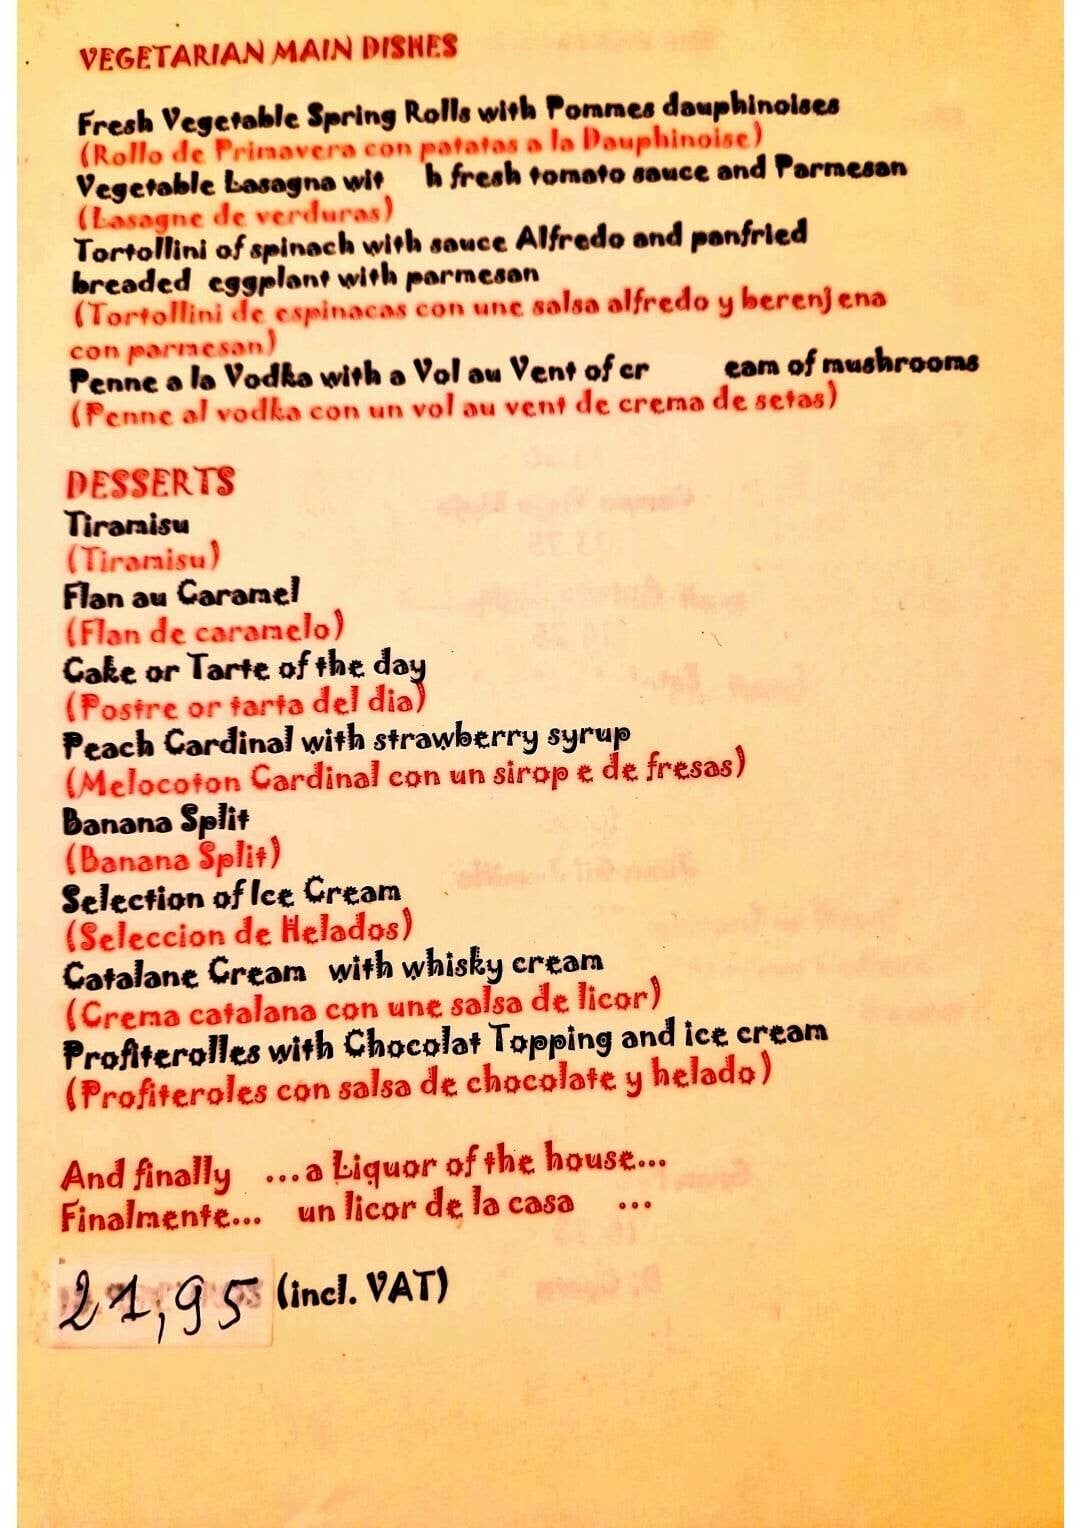 VEGETARIAN MAIN DISHES
Fresh Vegetable Spring Rolls with Pommes dauphinoises
(Rollo de Primavera con patatas a la Dauphinoise)
Vegetable Lasagna wit h fresh tomato sauce and Parmesan
(Lasagne de verduras)
Tortollini of spinach with sauce Alfredo and panfried
breaded eggplant with parmesan
(Tortollini de espinacas con une salsa alfredo y berenjena
con parmesan)
Penne a la Vodka with a Vol au Vent of cr eam of mushrooms
(Penne al vodka con un vol au vent de crema de setas)
DESSERTS
Tiramisu
(Tiramisu)
Flan au Caramel
(Flan de caramelo)
Cake or Tarte of the day
(Postre or tarta del dia)
Peach Cardinal with strawberry syrup
(Melocoton Cardinal con un sirop e de fresas)
Banana Split
(Banana Split)
Selection of Ice Cream
(Seleccion de Helados)
Catalane Cream with whisky cream
(Crema catalana con une salsa de licor)
Profiterolles with Chocolat Topping and ice cream
(Profiteroles con salsa de chocolate y helado)
And finally ...a Liquor of the house...
Finalmente... un licor de la casa ...
21,95 (incl. VAT)